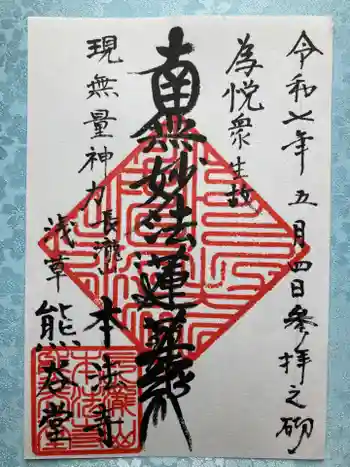 令和七年五月四日参拝之砌
為悦衆生故
南無妙法蓮華経
現無量神力
長瀧山本法寺
浅草
熊谷堂